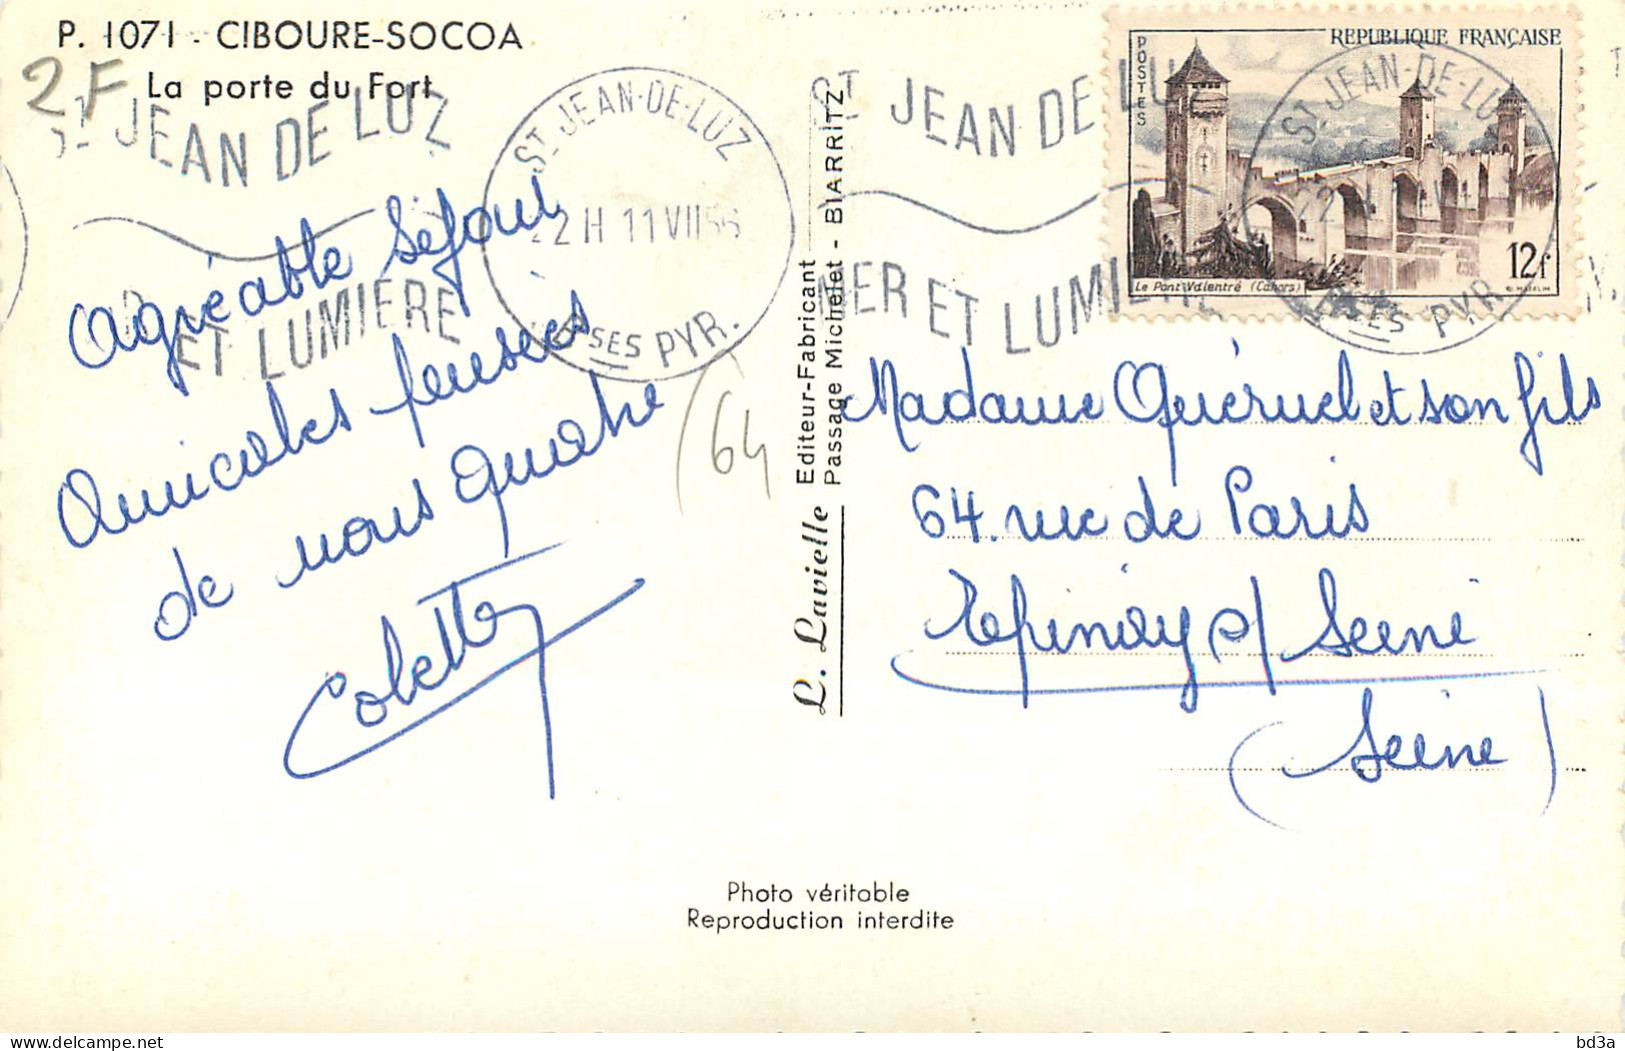 P. 1071 - CIBOURE-SOCOA
La porte du Fort
2F
ST JEAN DE LUZ
ET LUMIÈRE
ST JEAN-DE-LUZ
22H 11 VII 56
BSES PYR.
Agréable séjour
Amicales pensées
de nous quatre
Colette
(64
L. Lavielle
Editeur-Fabricant
Passage Michelet - BIARRITZ
ST JEAN DE LUZ
MER ET LUMIÈRE
POSTES
REPUBLIQUE FRANÇAISE
12f
Le Pont Valentré (Cahors)
ST JEAN-DE-LUZ
BSES PYR.
Madame Quéruel et son fils
64. rue de Paris
Epinay s/ Seine
(Seine)
Photo véritable
Reproduction interdite
bd3a